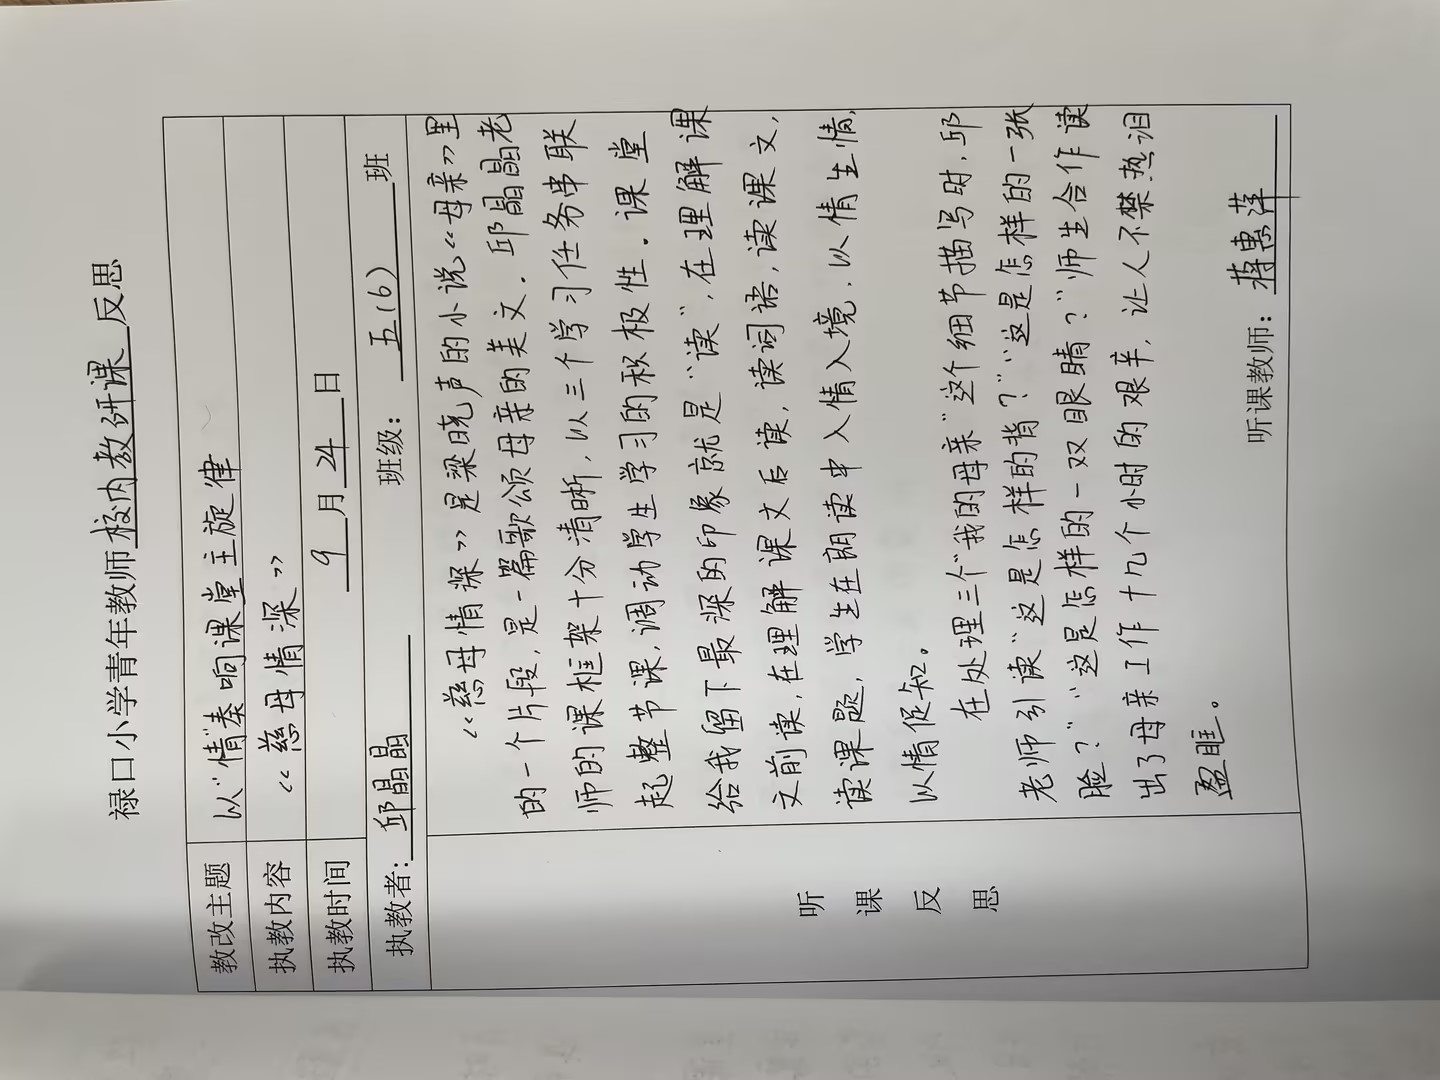 禄口小学青年教师校内教研课反思
教改主题 以“情”奏响课堂主旋律
执教内容 《慈母情深》
执教时间 9月24日
执教者:邱晶晶 班级：五（6）班
听课反思
《慈母情深》是梁晓声的小说《母亲》里
的一个片段，是一篇歌颂母亲的美文．邱晶晶老
师的课框架十分清晰，以三个学习任务串联
起整节课，调动学生学习的积极性．课堂
给我留下最深的印象就是“读”，在理解课
文前读，在理解课文后读，读词语，读课文，
读课题，学生在朗读中入情入境．以情生情，
以情促知。
在处理三个“我的母亲”这个细节描写时．邱
老师引读“这是怎样的背？”“这是怎样的一张
脸？”“这是怎样的一双眼睛？”师生合作读
出了母亲工作十几个小时的艰辛，让人不禁热泪
盈眶。
听课教师：蒋惠萍